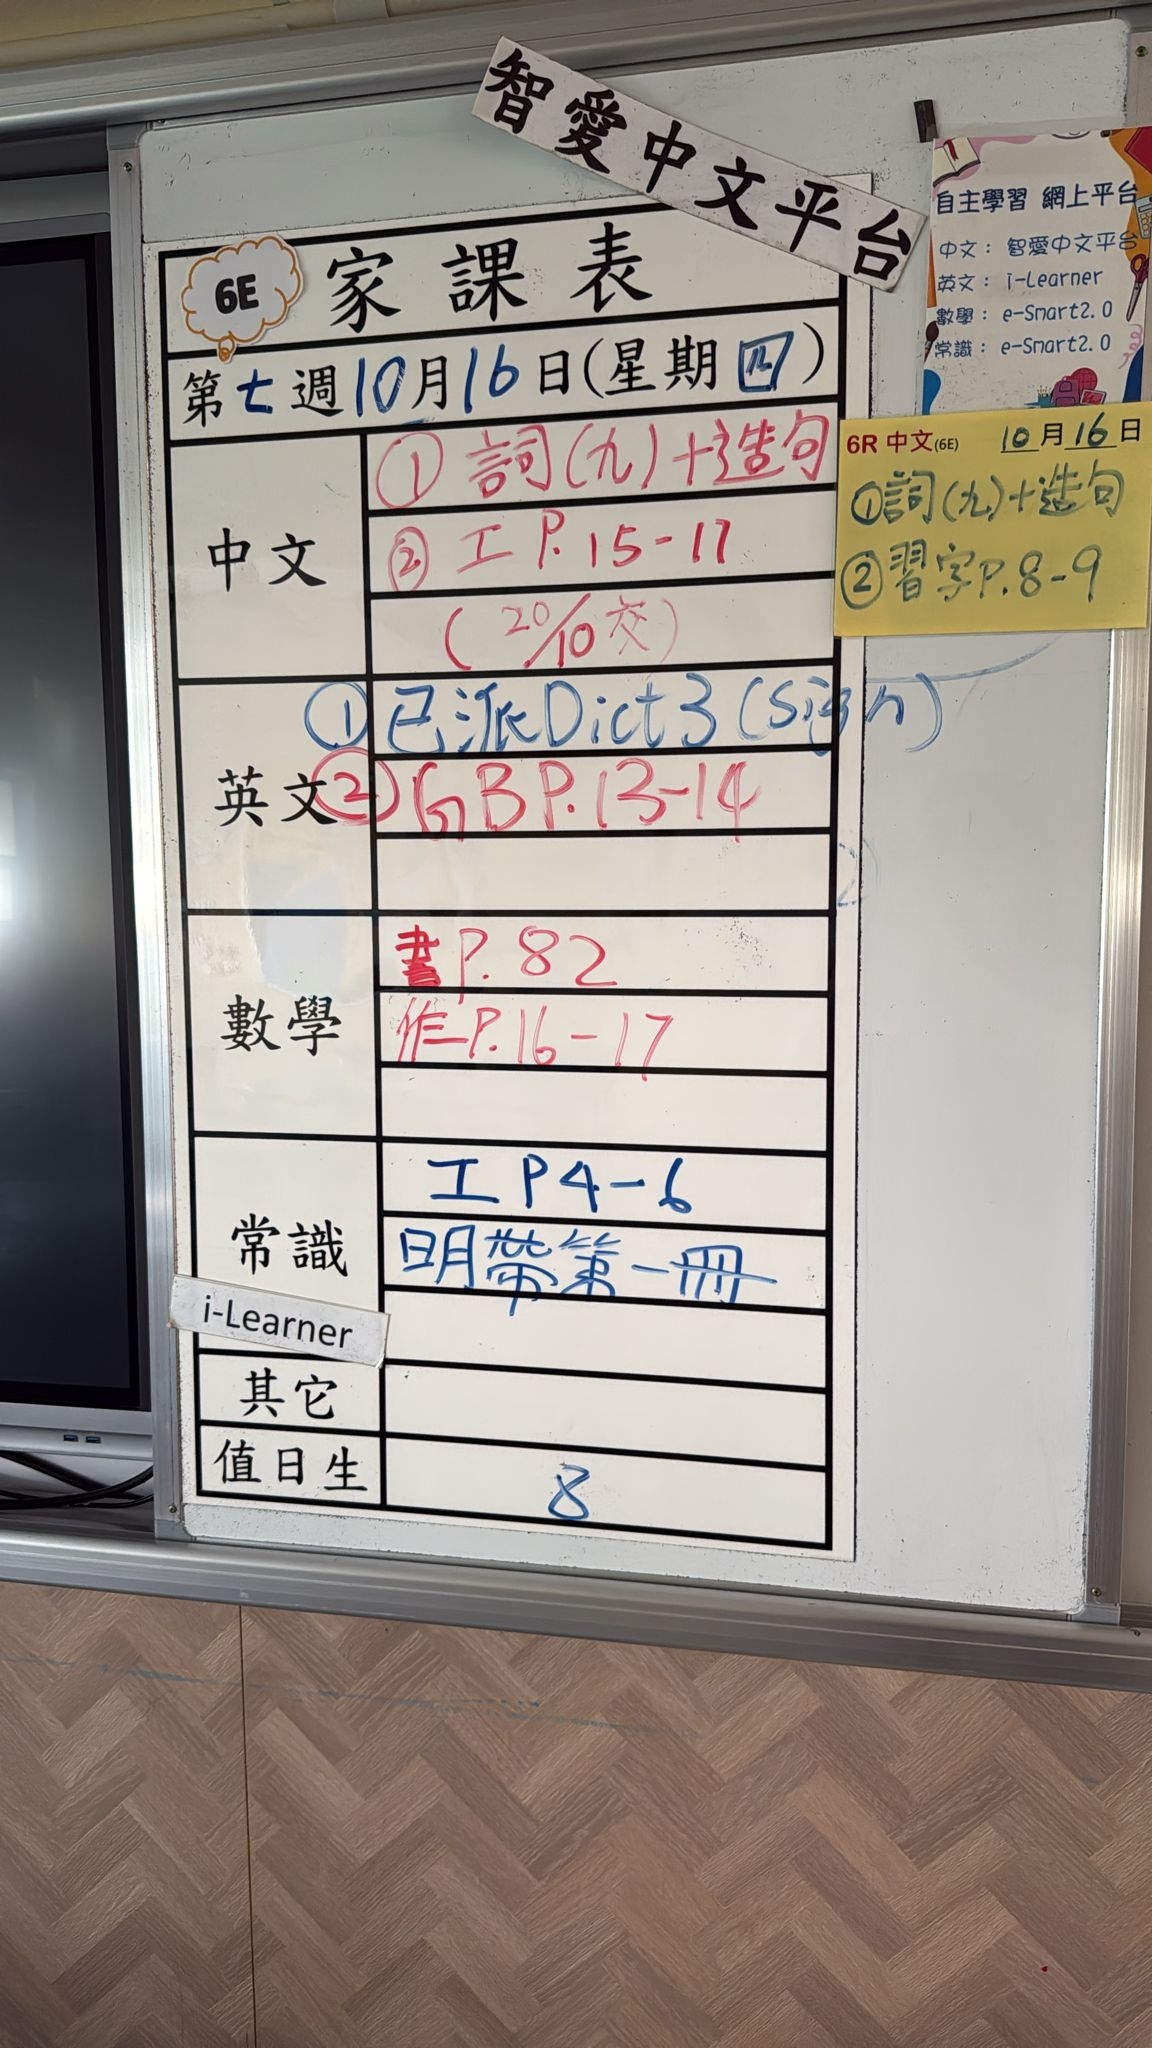 智愛中文平台
自主學習 網上平台
中文： 智愛中文平台
英文： i-Learner
數學： e-Smart2.0
常識： e-Smart2.0
6E 家課表
第七週10月16日(星期四)
中文
① 詞(九)+造句
② 工 P.15-17
(20/10交)
6R 中文(6E) 10月16日
①詞(九)+造句
②習字P.8-9
英文
① 已派Dict 3 (sign)
② GB P.13-14
數學
書P.82
作P.16-17
常識
工 P4-6
明帶第一冊
i-Learner
其它
值日生
8